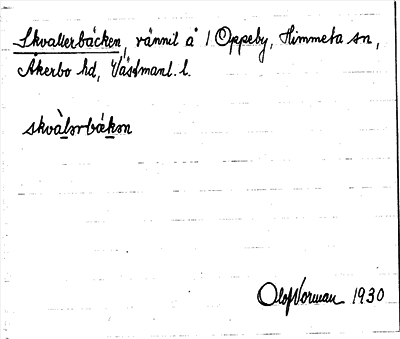 Skvallerbäcken, rännil å 1 Oppeby, Himmeta sn,
Åkerbo hd, Västmanl. l.
skvàlərbäkən
Olof Norman 1930